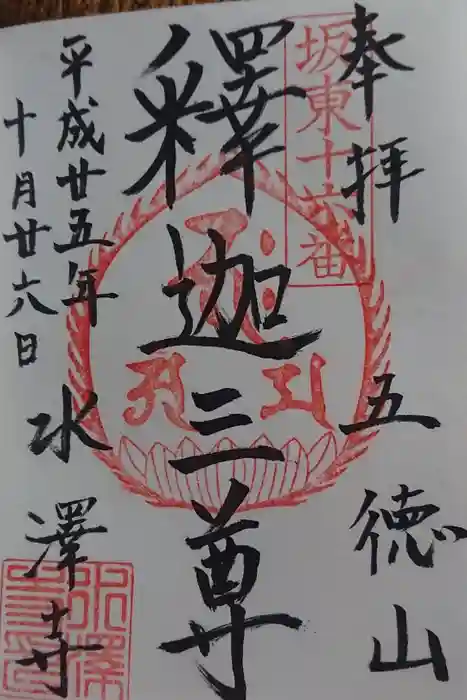 奉拝
五徳山
坂東十六番
釋迦三尊
平成廿五年
十月廿六日
水澤寺